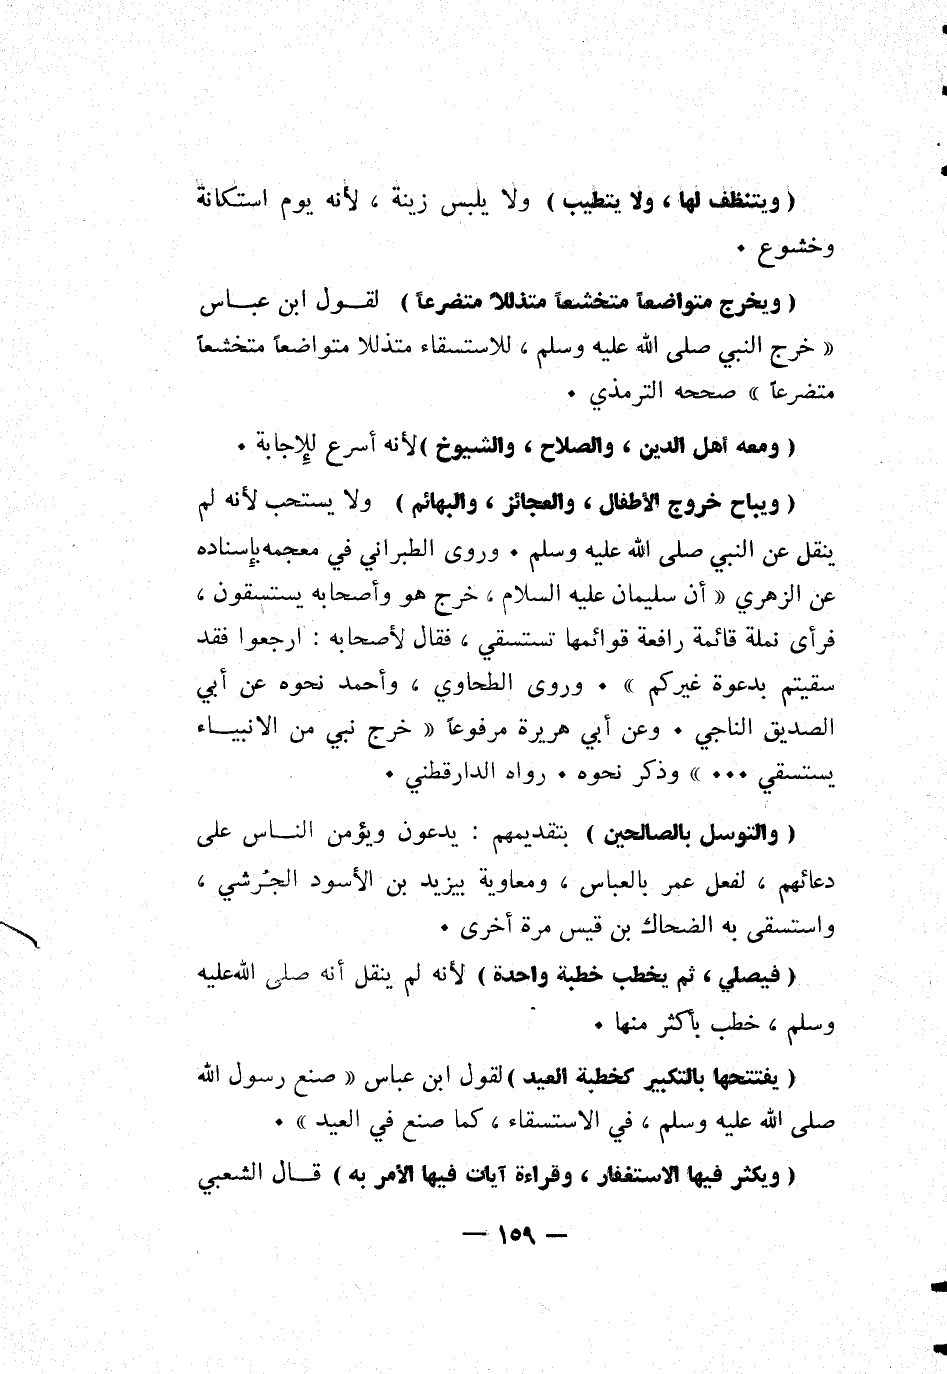 ( ويتنظف لها ، ولا يتطيب ) ولا يلبس زينة ، لأنه يوم استكانة
وخشوع .
( ويخرج متواضعاً متخشعاً متذللا متضرعاً ) لقول ابن عباس
« خرج النبي صلى الله عليه وسلم ، للاستسقاء متذللا متواضعاً متخشعاً
متضرعاً » صححه الترمذي .
( ومعه أهل الدين ، والصلاح ، والشيوخ )لأنه أسرع للإجابة .
( ويباح خروج الأطفال ، والعجائز ، والبهائم ) ولا يستحب لأنه لم
ينقل عن النبي صلى الله عليه وسلم . وروى الطبراني في معجمه بإسناده
عن الزهري « أن سليمان عليه السلام ، خرج هو وأصحابه يستسقون ،
فرأى نملة قائمة رافعة قوائمها تستسقي ، فقال لأصحابه : ارجعوا فقد
سقيتم بدعوة غيركم » . وروى الطحاوي ، وأحمد نحوه عن أبي
الصديق الناجي . وعن أبي هريرة مرفوعاً « خرج نبي من الانبياء
يستسقي ... » وذكر نحوه . رواه الدارقطني .
( والتوسل بالصالحين ) بتقديمهم : يدعون ويؤمن الناس على
دعائهم ، لفعل عمر بالعباس ، ومعاوية بيزيد بن الأسود الجُرشي ،
واستسقى به الضحاك بن قيس مرة أخرى .
( فيصلي ، ثم يخطب خطبة واحدة ) لأنه لم ينقل أنه صلى الله عليه
وسلم ، خطب بأكثر منها .
( يفتتحها بالتكبير كخطبة العيد )لقول ابن عباس « صنع رسول الله
صلى الله عليه وسلم ، في الاستسقاء ، كما صنع في العيد » .
( ويكثر فيها الاستغفار ، وقراءة آيات فيها الأمر به ) قال الشعبي
— ١٥٩ —